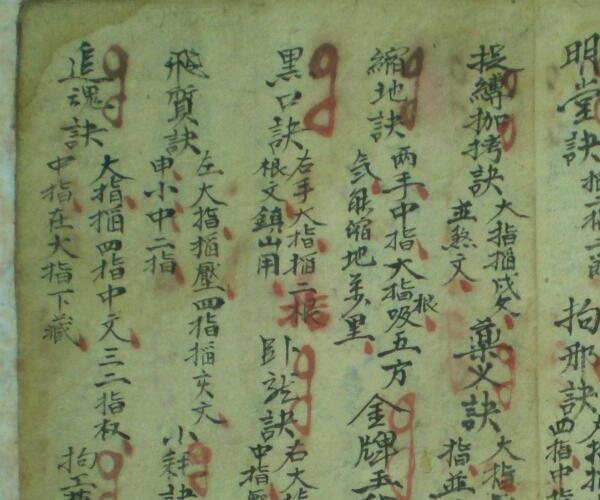 明堂訣
拘那訣
四指中
捉縛枷拷訣
大指掐戌文
並煞文
藥叉訣
大指
指並
縮地訣
兩手中指大指根吸五方
氣能縮地萬里
金牌玉
黑口訣
右手大指掐二根
根文鎮山用
卧龍訣
右大指
中指
飛質訣
左大指掐壓四指掐亥文
申小中二指
小
訣
追魂訣
大指掐四指中文三二指权
中指在大指下藏
拘工